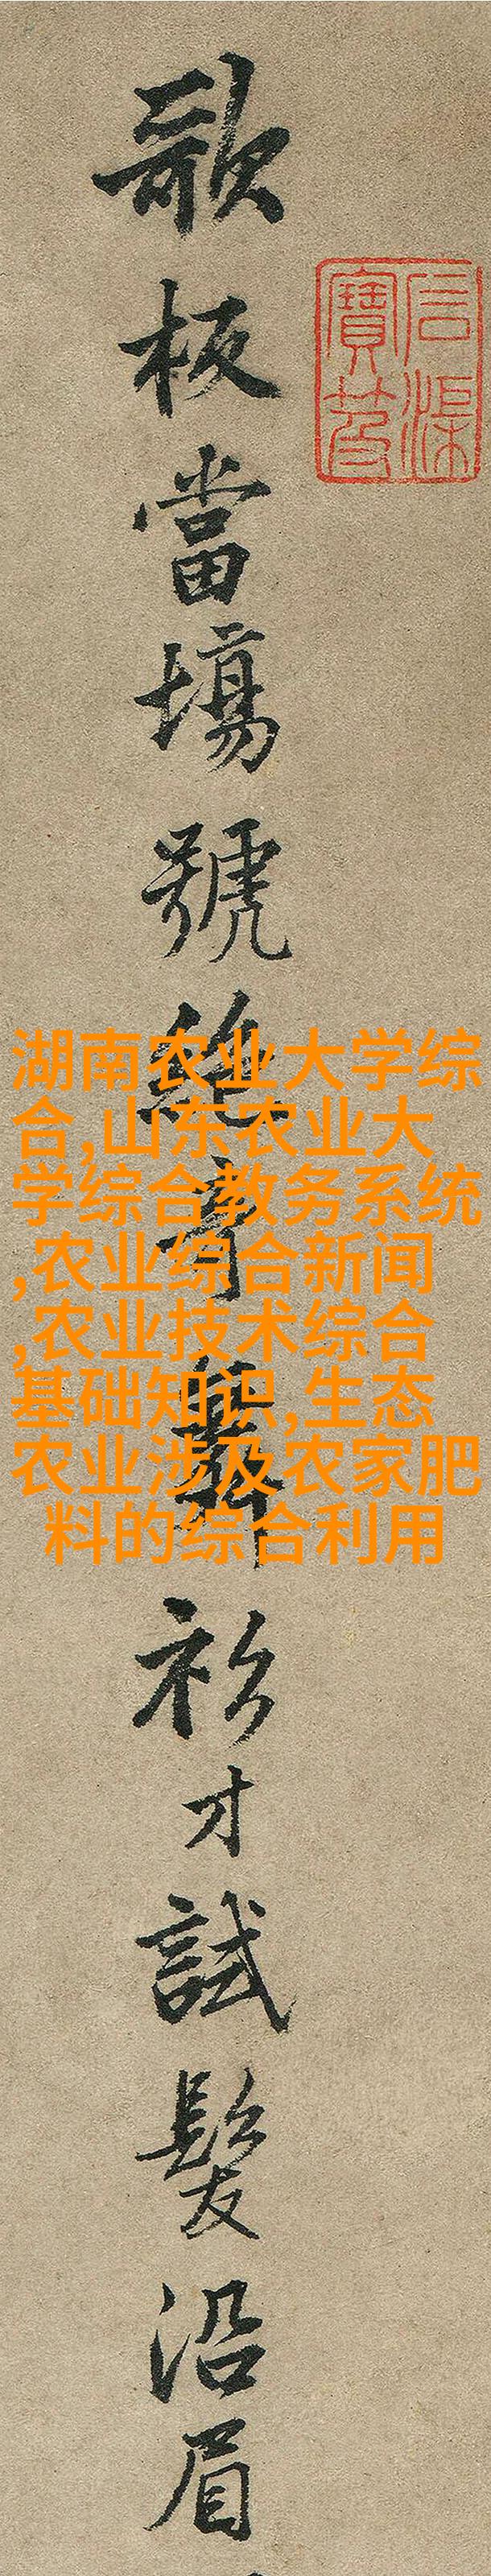 歌板當塲號絶竒舞衫才試髮沿眉
石渠
寶笈
湖南农业大学综
合,山东农业大
学综合教务系统
,农业综合新闻
,农业技术综合
基础知识,生态
农业涉及农家肥
料的综合利用